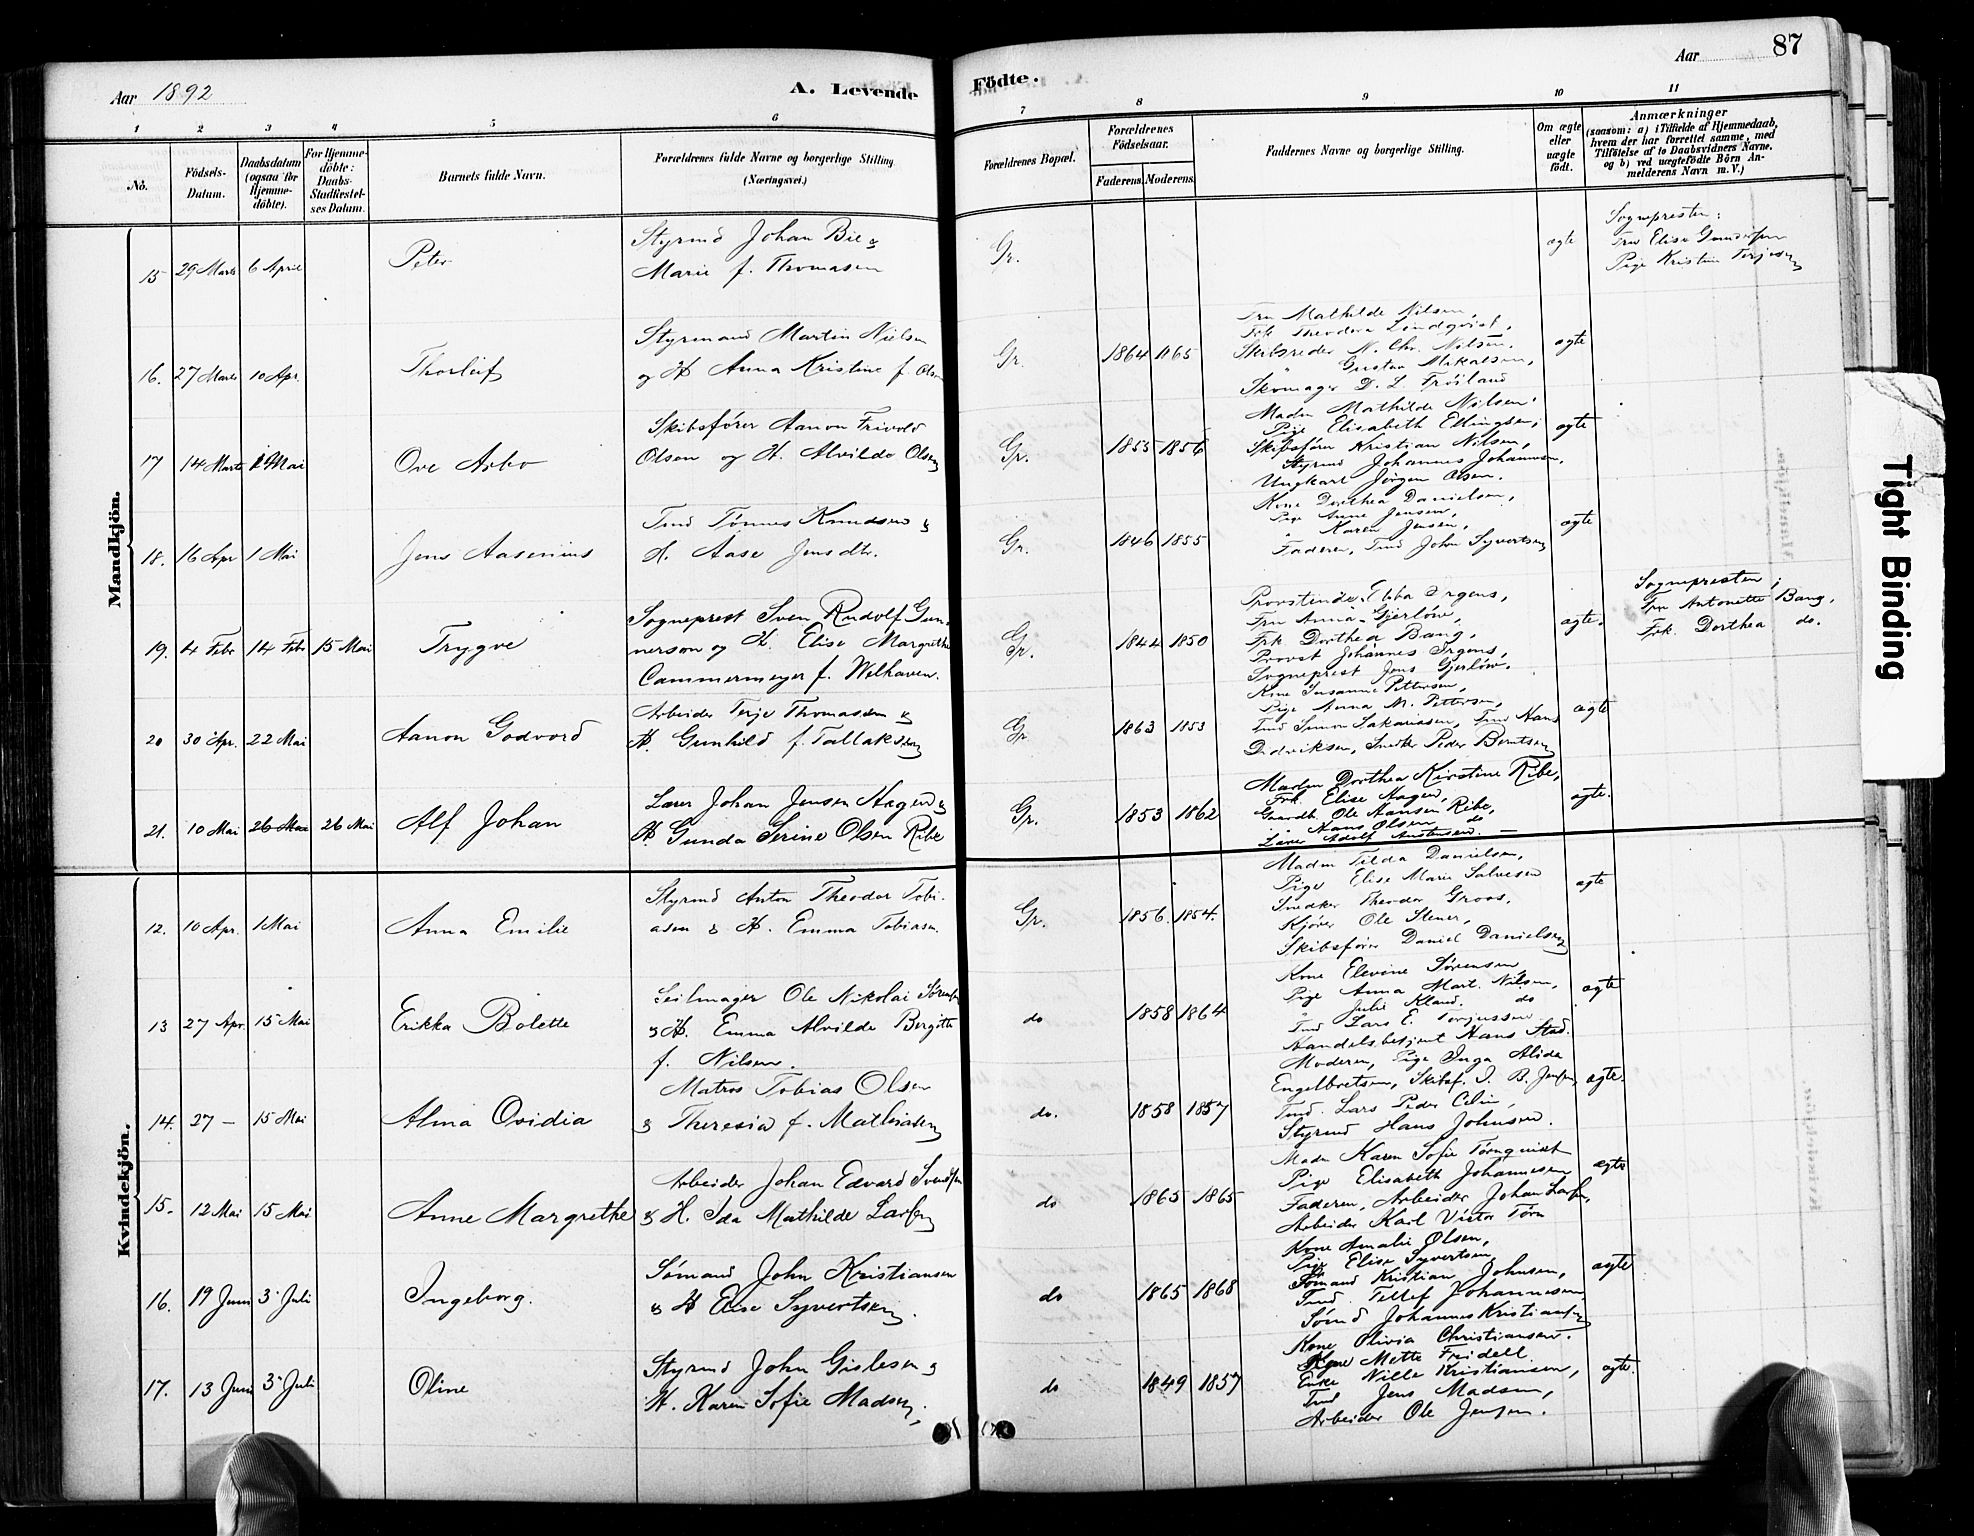 Aar 1892
A. Levende
Födte.
Aar
87
1 2 3 4 5 6 7 8 9 10 11
No.
Födsels-
Datum.
Daabsdatum
(ogsaa for
Hjemme-
döbte).
For Hjemme-
döbte:
Daabs-
Stadfæstel-
ses Datum.
Barnets fulde Navn.
Forældrenes fulde Navne og borgerlige Stilling
(Næringsvei.)
Forældrenes Bopæl.
Forældrenes
Födselsaar.
Faderens. Moderens.
Faddernes Navne og borgerlige Stilling.
Om ægte
eller
uægte
födt.
Anmærkninger
(saasom: a) i Tilfælde af Hjemmedaab,
hvem der har forrettet samme, med
Tilföielse af to Daabsvidners Navne.
og b) ved uægtefödte Börn An-
melderens Navn m. V.)
Mandkjön.
15 29 Marts 6 April
Peter
Styrmd Johan Bie &
Marie f. Thomasen
Gr.
ægte
Sognepresten:
Fru Elise Gundersen
Pige Kristine Terjesen
16. 27 Marts 10 Apr.
Thorleif
Styrmand Martin Nielsen
og H Anna Kristine f. Olsen
Gr.
1864 1165
Fru Mathilde Nilsen,
Frk Theodora Lindqvist,
Skibsreder N. Chr. Nilsen,
" Gustav Mikalsen,
Skomager D. L. Fröiland
ægte
17 14 Marts 1 Mai
Ove Asbo
Skibsfören Aanon Frivold
Olsen og H. Alvilde Olsen
Gr.
1855 1856
Madm Mathilde Nilsen,
Pige Elisabeth Ellingsen,
Skibsförer Kristian Nilsen,
Styrmd Johannes Johannesen,
Ungkarl Jörgen Olsen.
ægte
18. 16 Apr 1 Mai
Jens Aasenius
Tmd Tönnes Knudsen &
H. Aase Jensdtr.
Gr.
1846 1855
Kone Dorthea Danielsen,
Pige Anne Jensen,
" Karen Jensen,
Faderen, Tmd John Syvertsen
ægte
19. 4 Febr 14 Febr 15 Mai
Trygve
Sogneprest Sven Rudolf Gun-
nerson og H. Elise Margrethe
Cammermeyer f. Welhaven.
Gr.
1844 1850
Provstinde Ebba Irgens,
Fru Anna Gjerlöw,
Frk Dorthea Bang,
Provst Johannes Irgens,
Sogneprest Jens Gjerlöw.
ægte.
Sognepresten;
Fru Antonette Bang,
Frk. Dorthea do.
20 30 Apr. 22 Mai
Aanon Godvord
Arbeider Terje Thomassen &
H. Gunhild f. Tallaksen
Gr
1863 1853
Kone Susanne Pettersen,
Pige Anna M. Pettersen,
Tmd Simon Sakariasen, Tmd Hans
Didriksen, Snedker Peder Berntsen
ægte
21. 10 Mai 26 Mai 26 Mai
Alf Johan
Lærer Johan Jensen Hagen &
H. Gunda Serine Olsen Ribe
Gr.
1853 1862
Madm Dorthea Kirstine Ribe,
Frk. Elise Hagen,
Gaardb. Ole Hansen Ribe,
" Hans Olsen do
Lærer Adolf Austensen. —
ægte.
Kvindekjön.
12. 10 Apr. 1 Mai
Anna Emilie
Styrmd Anton Theodor Tobi-
asen & H. Emma Tobiasen.
Gr.
1856. 1854.
Madm Tilda Danielsen,
Pige Elise Marie Salvesen
Snedker Theodor Groos,
Kjörer Ole Stener,
Skibsförer Daniel Danielsen
ægte
13 27 Apr. 15 Mai
Erikka Bolette
Seilmager Ole Nikolai Sörensen
& H. Emma Alvilde Bergitte
f. Nilsen.
do
1858 1864
Kone Elevine Sörensen
Pige Anna Mart. Nilsen,
" Julie Kland. do
Tmd Lars E. Torjussen
Handelsbetjent Hans Stad.
ægte
14. 27 — 15 Mai
Alma Ovidia
Matros Tobias Olsen
& Theresia f. Mathiasen
do.
1858 1857
Moderen, Pige Inga Alida
Engelbretsen, Skibsf. I. B. Jensen,
Tmd. Lars Peder
Styrmd Hans Johnsen.
ægte.
15. 12 Mai 15 Mai
Anne Margrethe
Arbeider Johan Edvard Svendsen
& H. Ida Mathilde Larsen
do
1865 1865
Madm Karen Sofie Törnqvist
Pige Elisabeth Johannesen
Faderen, Arbeider Johan Larsen,
Arbeider Karl Victor Törn
ægte
16. 19 Juni 3 Juli
Ingeborg.
Sömand John Kristiansen
& H Elise Syvertsen
do
1865 1868
Kone Amalie Olsen,
Pige Elise Syvertsen,
Sömand Kristian Johnsen,
Tmd. Tellef Johannesen
Sömd Johannes Kristiansen
ægte
17. 13 Juni 3 Juli
Oline
Styrmd John Gislesen &
H. Karen Sofie Madsen,
do
1849 1857
Kone Olivia Christiansen.
Kone Mette Freidell.
Enke Nille Kristiansen,
Tmd Jens Madsen,
Arbeider Ole Jensen.
ægte.
Tight Binding